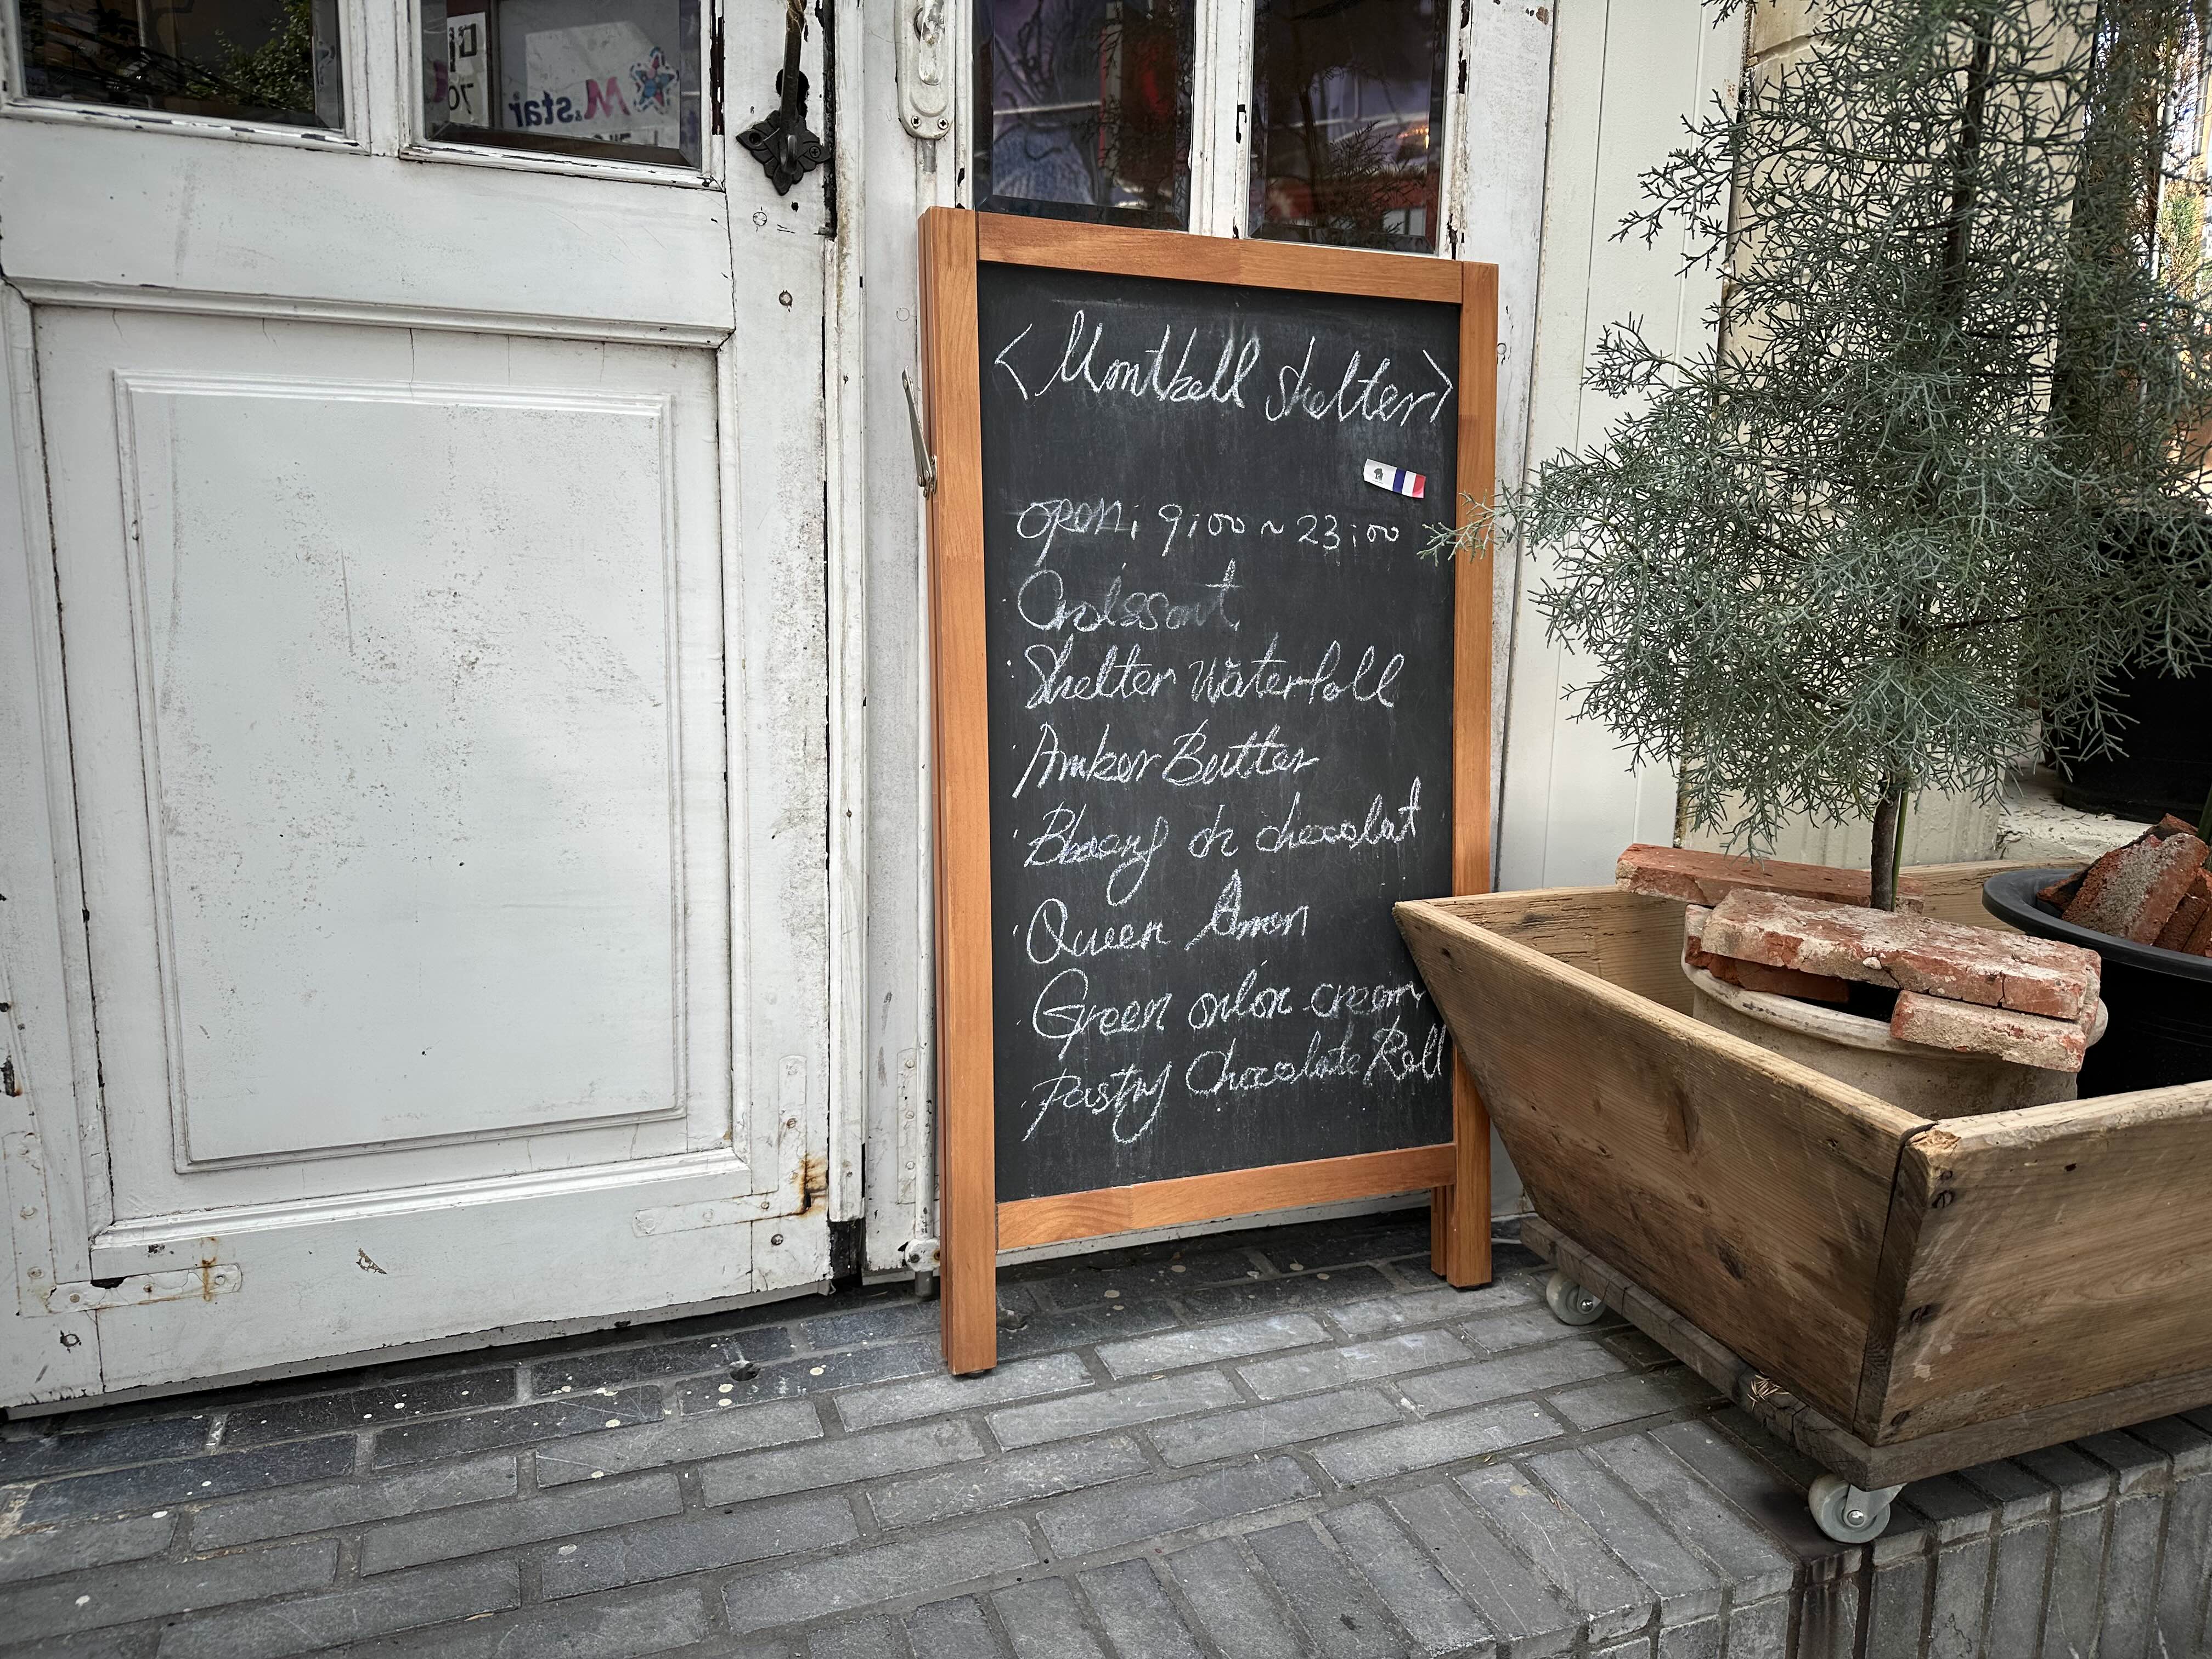 M.star
70
<Montkell Shelter>
open; 9;00 ~ 23;00
Croissant
Shelter Waterfall
Amber Butter
de chocolat
Queen Amon
Green onion cream
Pastry Chocolate Roll